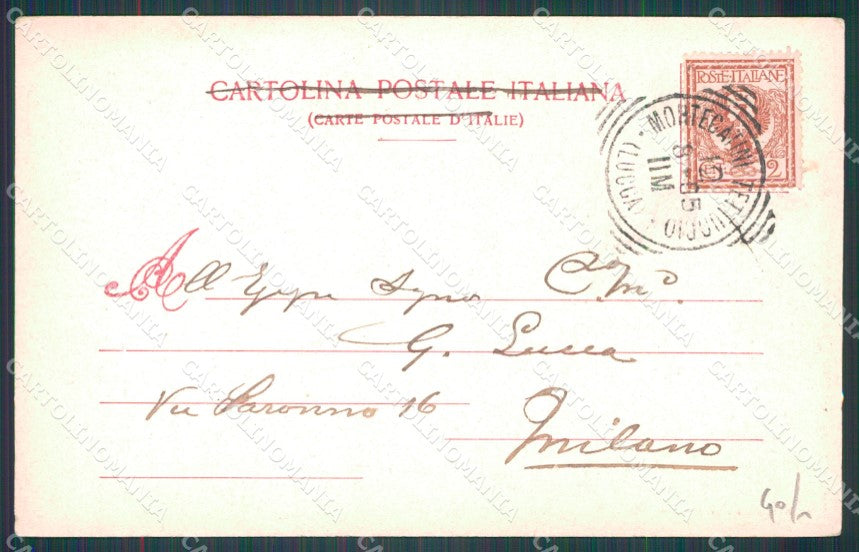 CARTOLINA POSTALE ITALIANA
(CARTE POSTALE D'ITALIE)
POSTE·ITALIANE
2
MONTECATINI TETTUCCIO
(LUCCA)
All'
G. Lucca
Via Saronno 16
Milano
CARTOLINOMANIA